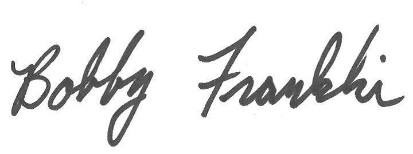 Bobby Franklin